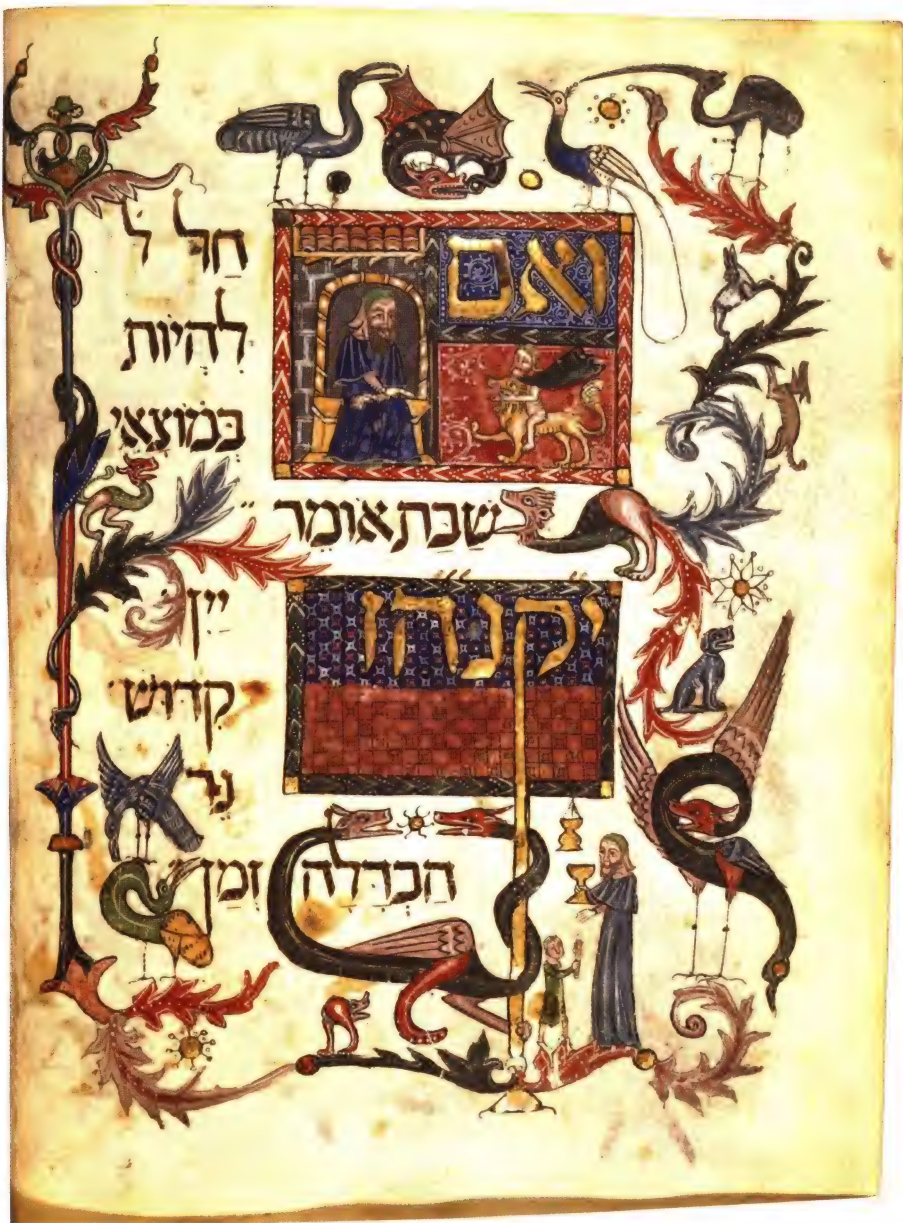 ואם חַל ל
לִהְיוֹת
בְּמוֹצָאֵי
שַׁבָּת אוֹמֵר
יקנהז
יַיִן
קִדּוּשׁ
נֵר
הַבְדָּלָה זְמַן